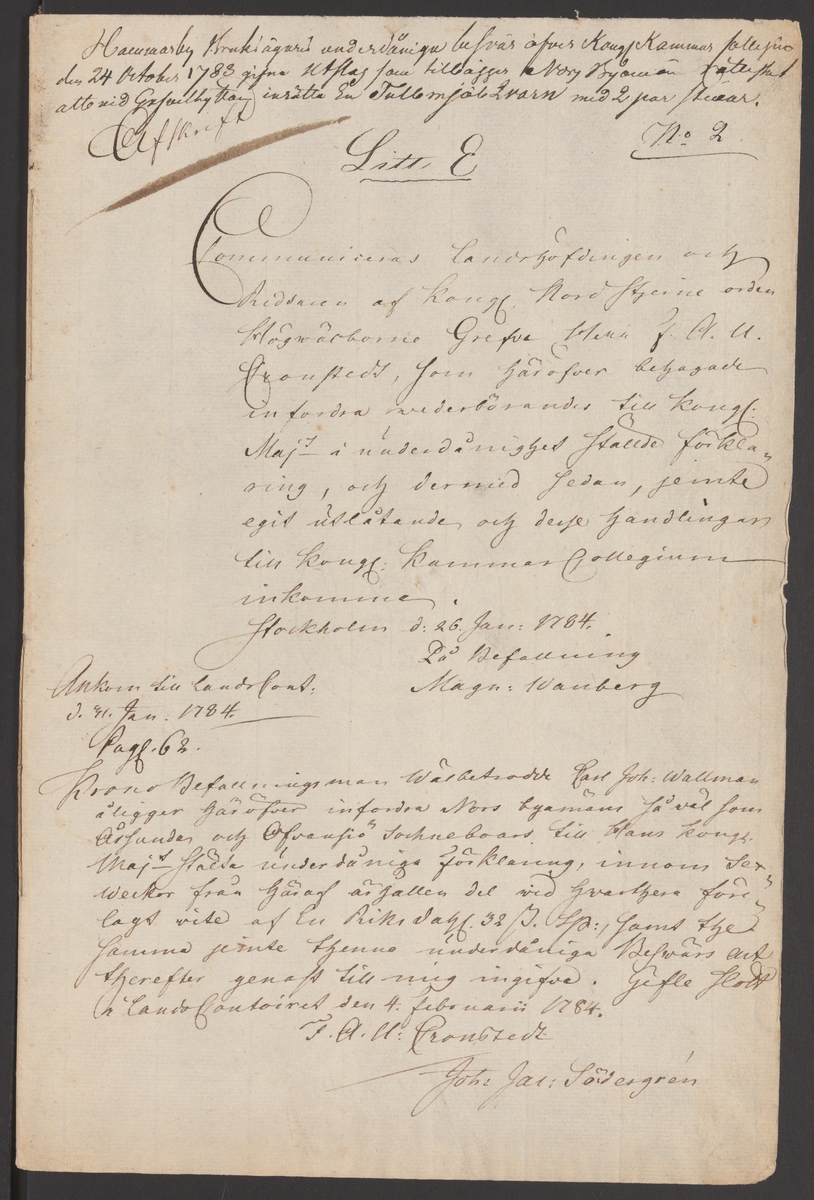 Hammarby Bruksägares underdånige besvär öfver Kongl. Kammar Collegii
den 24 October 1783 gifne Utslag som tillägger Nors Byamän rättighet
att vid Gafvelhyttan inrätta En Tullmjöl Qvarn med 2 par stenar.
Afskrift
N:o 2
Litt. E
Communiceras Landshöfdingen och
Riddaren af Kongl. Nord Stjerne orden
Högwälborne Grefve Herr F. A. U.
Cronstedt, som häröfver behagade
infordra wederbörandes till Kongl.
Maj:t i underdånighet ställde förkla-
ring, och dermed sedan, jemte
egit utlåtande och desse handlingar
till Kongl: Kammar Collegium
inkomma.
Stockholm d: 26. Jan: 1784.
På Befallning
Magn: Wanberg
Ankom till Lands Cont:
d. 31. Jan: 1784.
Pag. 62.
Krono Befallningsman Wälbetrodde Carl Joh: Wallman
åligger häröfver infordra Nors byamäns så väl som
Årsunda och Ofvansjö Sochneboars till Hans Kongl.
Maj:t stälda underdåniga förklaring, innom Sex
Weckor från häraf ärhallen del vid hwarthera före-
lagt wite af En Riksdahl. 32 ß. Sp:, samt the
samma jemte thenne underdåniga Beswärs act
therefter genast till mig ingifva. Gefle Slott
i Lands Contoiret den 4. Februarii 1784.
F. A. U: Cronstedt
Joh: Jac: Södergren